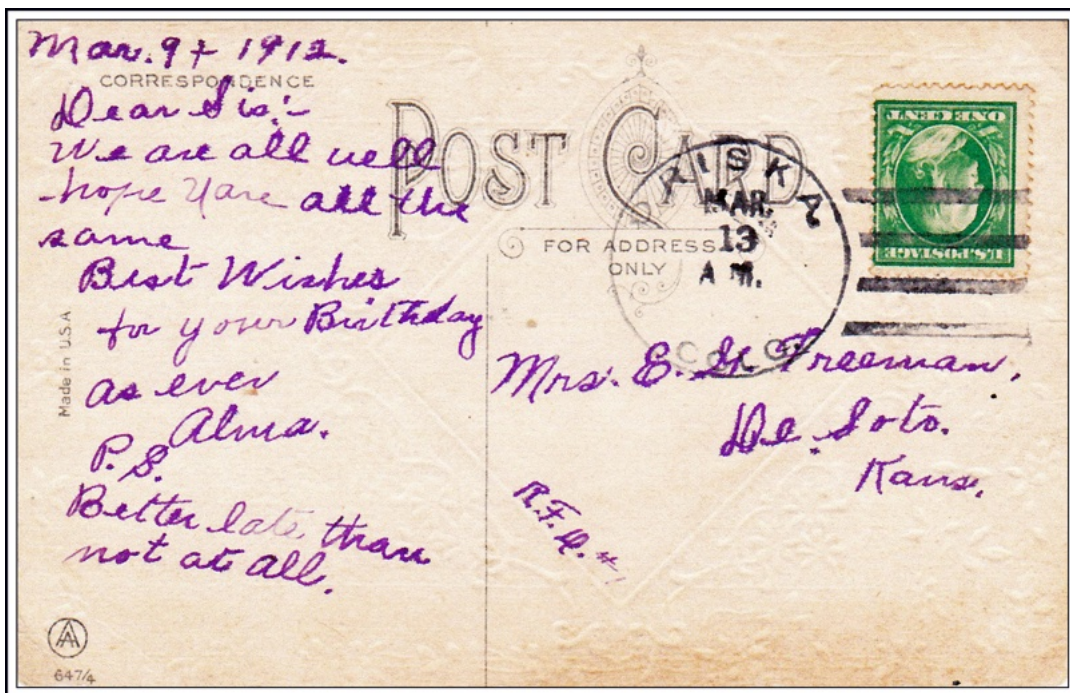 Mar. 9 + 1912.
CORRESPONDENCE
Dear Sis:-
We are all well
hope Yare all the
same
Best Wishes
for your Birthday
as ever
Alma.
P.S.
Better late than
not at all.
Made in U.S.A
AA
647/4
POST CARD
FOR ADDRESS
ONLY
MAR.
13
A M.
COLO.
ONE CENT
U.S. POSTAGE
Mrs. E. Freeman,
De Soto.
Kans.
R.F.D. #1